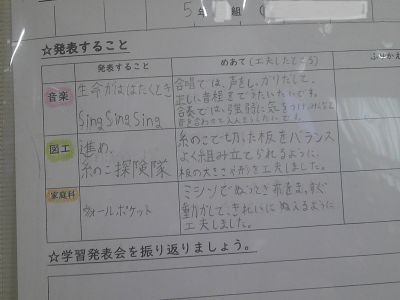 5年 組 (
☆発表すること
発表すること
めあて(工夫したところ)
音楽
生命がはばたくとき
Sing Sing Sing
合唱では、声をしっかりだして、
正しい音程でうたいたいです。
合奏では、強弱に気をつけ、みんなと
図工
進め、
糸のこ探険隊
糸のこで切った板をバランス
よく組み立てられるように、
板の大きさや形を工夫しました。
家庭科
ウォールポケット
ミシンでぬうとき布をまっすぐ
動かして、きれいにぬえるように
工夫しました。
☆学習発表会を振り返りましょう。